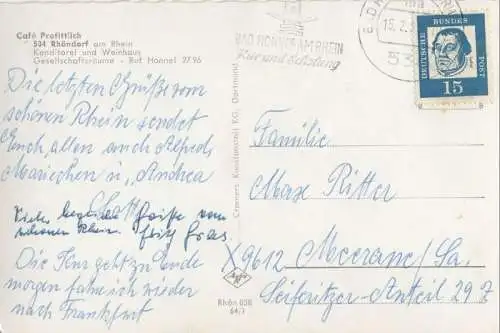 Café Profittlich
534 Rhöndorf am Rhein
Konditorei und Weinhaus
Gesellschaftsräume - Ruf Honnef 2796
BAD HONNEF AM RHEIN
Kur und Erholung
DEUTSCHE BUNDES POST
15
Die letzten Grüße vom
schönen Rhein sendet
Euch allen auch Alfred,
Mariechen u. Andrea
Viele herzliche Grüße vom
schönen Rhein. Fritz
Die Tour geht zu Ende
morgen fahre ich wieder
nach Frankfurt
Cramers Kunstanstalt KG, Dortmund
Rhön 838
64/1
Familie
Max Ritter
X 9612 Meerane/Sa.
Seiferitzer-Anteil 29